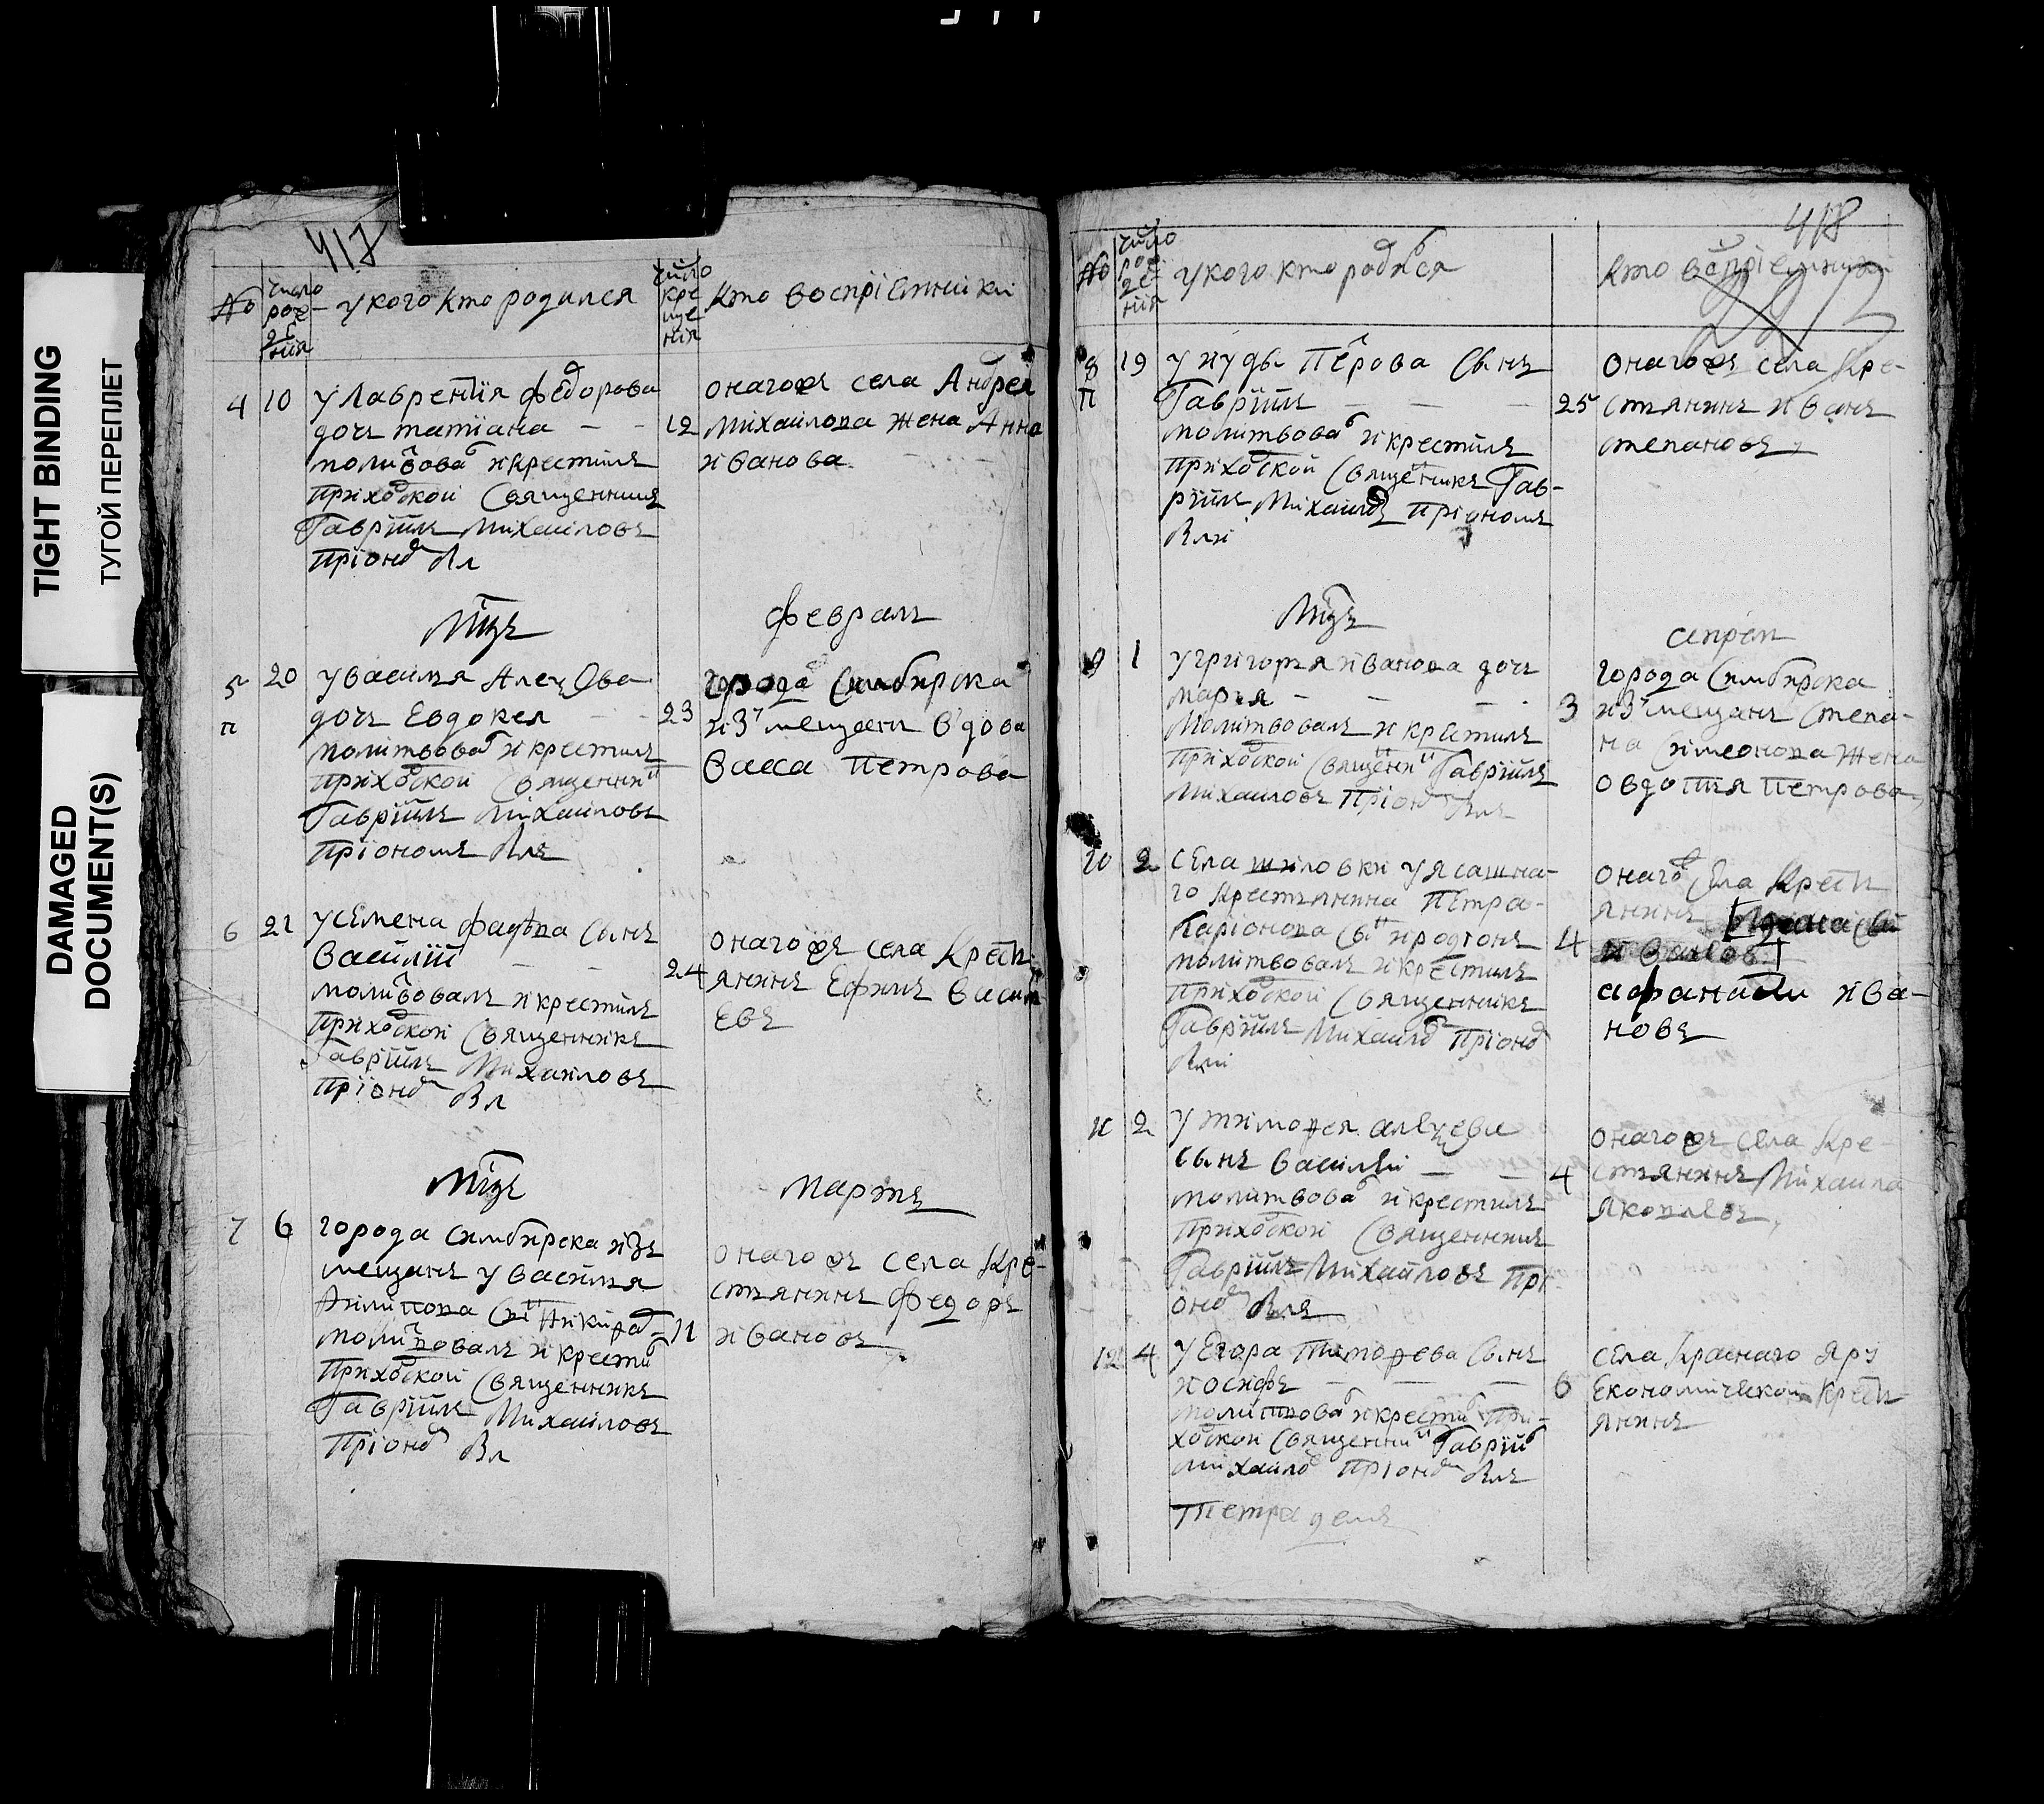 TIGHT BINDING
ТУГОЙ ПЕРЕПЛЕТ
DAMAGED
DOCUMENT(S)
417
№
число
рож-
де
нія
у кого кто родился
число
кре
ще
нія
кто воспріемники
4 10 у Лаврентія федорова
дочь татіана
молитвовал и крестилъ
приходской священникъ
Гавріилъ Михаиловъ
12
онагожъ села Андрея
михаилова жена Анна
иванова
Мцъ февраль
5 20 у василья
п
дочь Евдокея
молитвовал и крестилъ
приходской священник
Гавріилъ Михаиловъ
23
города Симбирска
изъ мещанъ вдова
васса петрова
6 21 у семена фадѣва сынъ
василіи
молитвовалъ и крестилъ
приходской священникъ
Гавріилъ Михаиловъ
24
онагожъ села крест
янинъ Ефимъ васил
евъ
Мцъ мартъ
7 6 города симбирска изъ
мещанъ у василья
молитвовалъ и крестил
приходской священникъ
Гавріилъ Михаиловъ
11
онагожъ села кре-
стьянинъ федоръ
ивановъ
418
№
число
рож
де
нія
у кого кто родился
кто воспріемники
8 19 у иуды петрова сынъ
п
Гавріилъ
молитвовал и крестилъ
приходской священникъ Гав-
ріилъ Михаилов
25
онагожъ села кре-
стьянинъ иванъ
степановъ
Мцъ апрель
9 1 у григорья иванова дочь
марья
молитвовалъ и крстилъ
приходской священник Гавріилъ
Михаиловъ
3
города симбирска
изъ мещанъ степа-
на симеонова жена
овдотья петрова
10 2 села шиловки у ясашна-
го крестьянина петра
ларіонова сын иродіонъ
молитвовалъ и крестилъ
приходской священникъ
Гавріилъ Михаилов
4
онагож села крест
янинъ
ивановъ
афанасеи ива-
новъ
11 2 у тимофея
сынъ василеи
молитвовал и крестилъ
приходской священникъ
Гавріилъ Михаиловъ
4
онагожъ села кре
стьянинъ Михаила
яковлевъ
12 4 у Егора тимофеева сынъ
иосифъ
молитвовал и крестил при-
ходской священник Гавріил
михаилов
6
села краснаго яру
економическои крест
янинъ